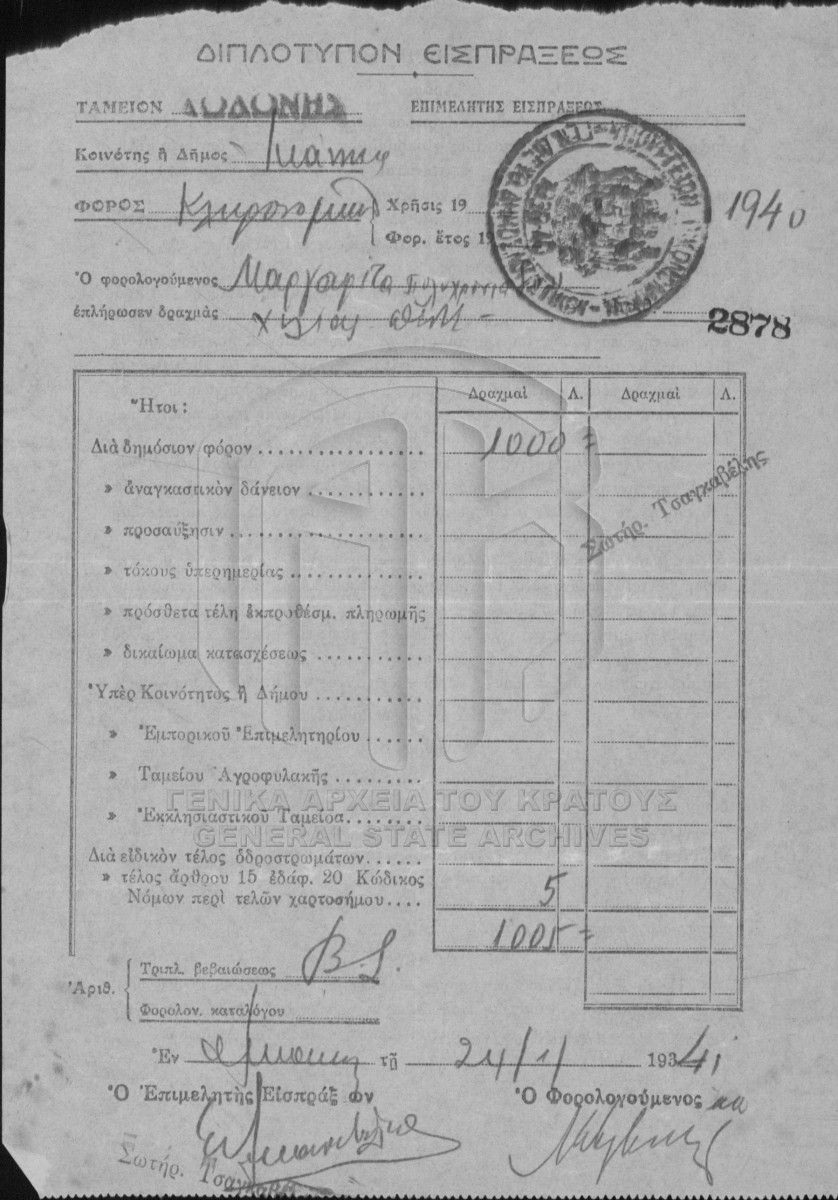 ΔΙΠΛΟΤΥΠΟΝ ΕΙΣΠΡΑΞΕΩΣ
ΤΑΜΕΙΟΝ ΔΩΔΩΝΗΣ ΕΠΙΜΕΛΗΤΗΣ ΕΙΣΠΡΑΞΕΩΣ
Κοινότης ἢ Δῆμος
ΦΟΡΟΣ Χρῆσις 19 1940
Φορ. ἔτος 19
Ὁ φορολογούμενος Μαργαρίτα
ἐπλήρωσεν δραχμὰς χιλίας πέντε
2878
Δραχμαὶ Λ. Δραχμαὶ Λ.
Ἤτοι :
Διὰ δημόσιον φόρον 1000 =
» ἀναγκαστικὸν δάνειον
Σωτήρ. Τσαγκαβέλης
» προσαύξησιν
» τόκους ὑπερημερίας
» πρόσθετα τέλη ἐκπροθέσμ. πληρωμῆς
» δικαίωμα κατασχέσεως
Ὑπὲρ Κοινότητος ἢ Δήμου
» Ἐμπορικοῦ Ἐπιμελητηρίου
» Ταμείου Ἀγροφυλακῆς
» Ἐκκλησιαστικοῦ Ταμείοα
ΓΕΝΙΚΑ ΑΡΧΕΙΑ ΤΟΥ ΚΡΑΤΟΥΣ
GENERAL STATE ARCHIVES
Διὰ εἰδικὸν τέλος ὁδροστρωμάτων
» τέλος ἄρθρου 15 ἐδάφ. 20 Κώδικος
Νόμων περὶ τελῶν χαρτοσήμου 5
1005 =
Ἀριθ. Τριπλ. βεβαιώσεως
Φορολον. καταλόγου
Ἐν τῇ 24/1/ 193 41
Ὁ Ἐπιμελητὴς Εἰσπράξ ων Ὁ Φορολογούμενος
Σωτήρ.